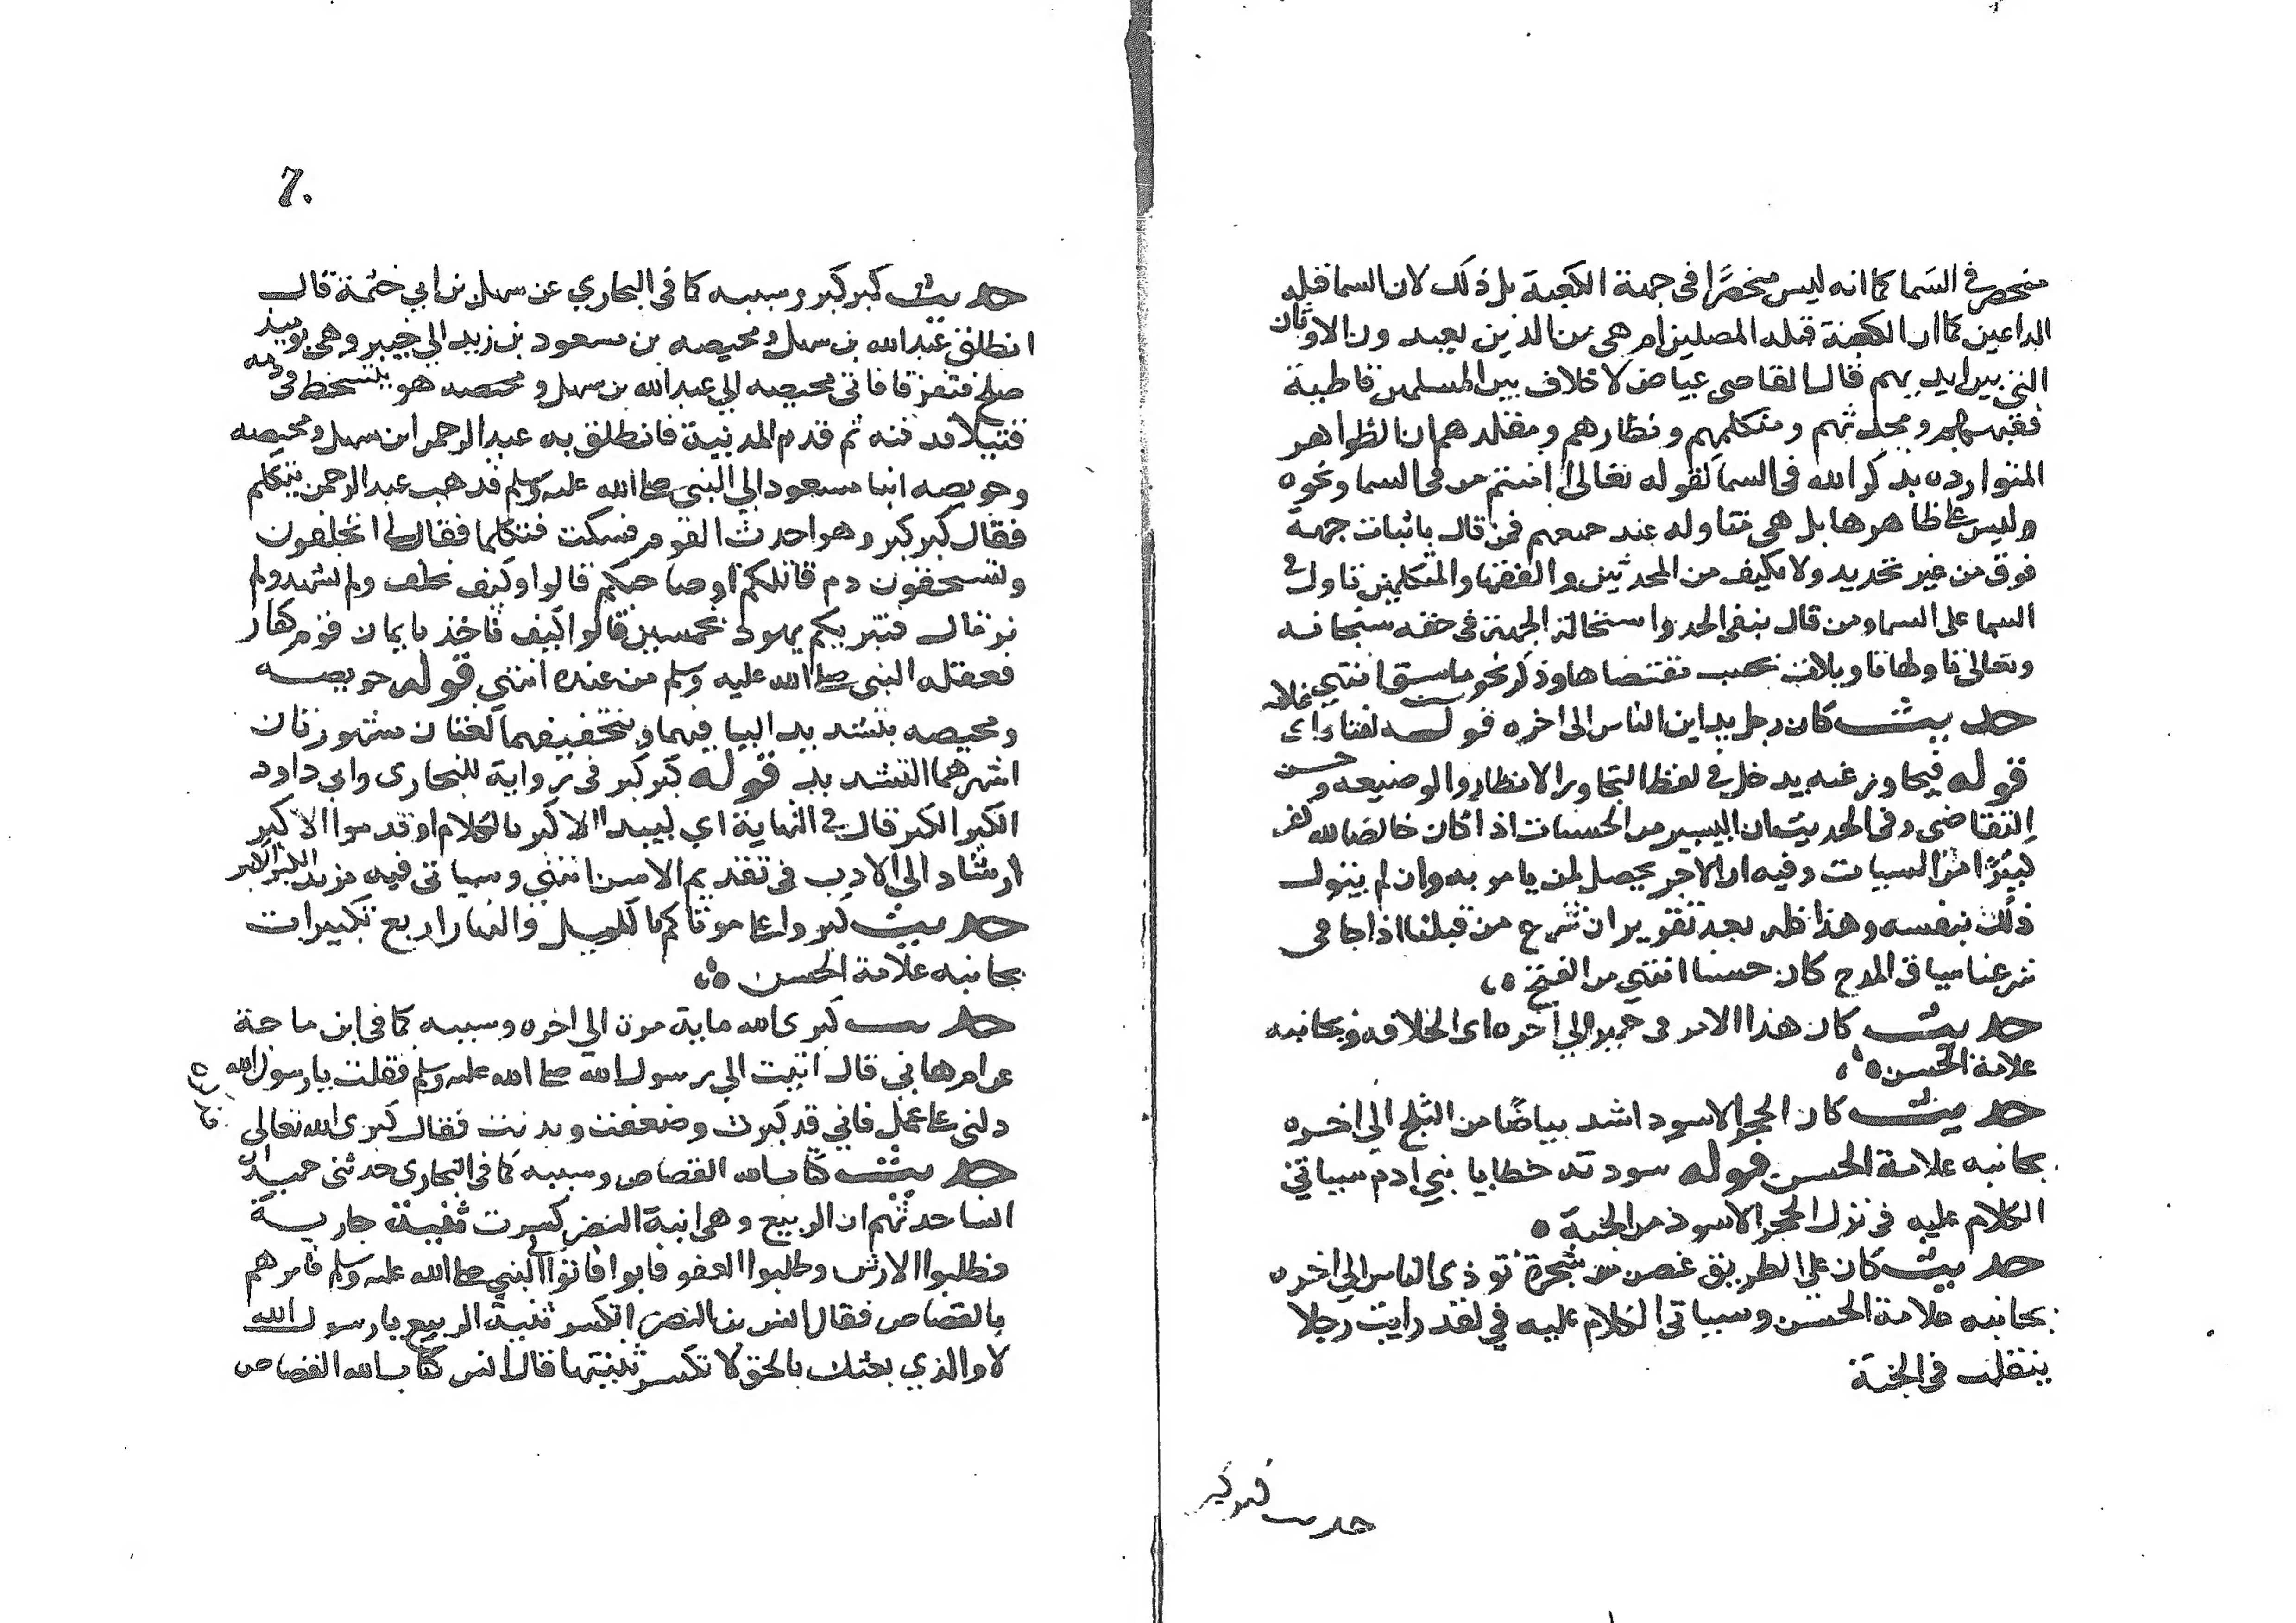 منحصر في السما كما انه ليس منحصرا في جهة الكعبة بل ذلك لان السما قبلة
الداعين كما ان الكعبة قبلة المصلين ام هي من الذين يعبدون الاوثان
التي بين ايديهم قال القاضي عياض لا خلاف بين المسلمين قاطبة
فقيههم ومحدثهم ومتكلمهم ونظارهم ومقلدهم ان الظواهر
المتوارده بذكر الله في السما كقوله تعالى اامنتم من في السما ونحوه
وليس على ظاهرها بل هي متاوله عند جميعهم فمن قال باثبات جهة
فوق من غير تحديد ولا تكييف من المحدثين والفقها والمتكلمين تاول في
السما على السما ومن قال بنفي الحد واستحالة الجهة في حقه سبحانه
وتعالى تاولها تاويلات بحسب مقتضاها وذكر نحو ما سبق انتهي
حديث كان رجل يداين الناس الى اخره قوله لفتاه اي غلامه
قوله فيجاوز عنه يدخل في لفظ التجاوز الانظار والوضيعه وحسن
التقاضي وفي الحديث ان اليسير من الحسنات اذا كان خالصا لله كفر
كثيرا من السيات وفيه ان الاجر يحصل لمن يامر به وان لم يتول
ذلك بنفسه وهذا كله بعد تقرير ان شرع من قبلنا اذا جا في
شرعنا سياق المدح كان حسنا انتهي من الفتح ه
حديث كان هذا الامر في حمير الي اخره اي الخلافه وبجانبه
علامة الحسن ه
حديث كان الحجر الاسود اشد بياضا من الثلج الي اخره
بجانبه علامة الحسن قوله سودته خطايا بني ادم سياتي
الكلام عليه في نزل الحجر الاسود من الجنة ه
حديث كان على الطريق غصن شجرة توذي الناس الي اخره
بجانبه علامة الحسن وسياتي الكلام عليه في لقد رايت رجلا
يتقلب في الجنة
حديث كبر كبر
7.
حديث كبر كبر وسببه كما في البخاري عن سهل بن ابي حثمة قال
انطلق عبد الله بن سهل ومحيصه بن مسعود بن زيد الي خيبر وهي يوميذ
صلح فتفرقا فاتى محيصه الي عبد الله بن سهل وهو يتشحط في دمه
قتيلا فدفنه ثم قدم المدينة فانطلق به عبد الرحمن ابن سهل ومحيصه
وحويصه ابنا مسعود الي النبي صلى الله عليه وسلم فذهب عبد الرحمن يتكلم
فقال كبر كبر وهو احدث القوم فسكت فتكلما فقال اتحلفون
وتستحقون دم قاتلكم او صاحبكم قالوا وكيف نحلف ولم نشهد ولم
نر قال فتبريكم يهود بخمسين قالوا كيف ناخذ بايمان قوم كفار
فعقله النبي صلى الله عليه وسلم من عنده انتهي قوله حويصه
ومحيصه بتشديد اليا فيهما وبتخفيفهما لغتان مشهورتان
اشهرهما التشديد قوله كبر كبر في رواية للبخاري وابي داود
الكبر الكبر قال في النهاية اي ليبدا الاكبر بالكلام او قدموا الاكبر
ارشاد الي الادب في تقديم الاسن انتهي وسياتي فيه مزيد
حديث كبروا على موتاكم بالليل والنهار اربع تكبيرات
بجانبه علامة الحسن ه
حديث كبري الله ماية مرة الي اخره وسببه كما في ابن ماجة
عن ام هاني قال اتيت الي رسول الله صلى الله عليه وسلم فقلت يا رسول الله
دلني على عمل فاني قد كبرت وضعفت وبدنت فقال كبري الله تعالى
حديث كتاب الله القصاص وسببه كما في البخاري حدثني حميد ان
انسا حدثهم ان الربيع وهي ابنة النضر كسرت ثنية جارية
فطلبوا الارش وطلبوا العفو فابوا فاتوا النبي صلى الله عليه وسلم فامرهم
بالقصاص فقال انس بن النضر اتكسر ثنية الربيع يا رسول الله
لا والذي بعثك بالحق لا تكسر ثنيتها قال انس كتاب الله القصاص